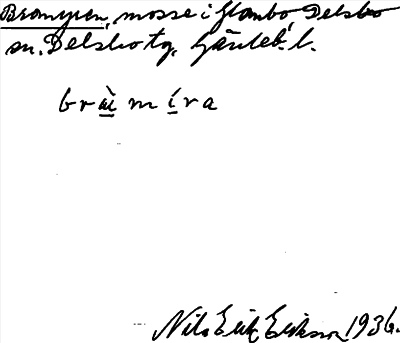 Bromyren, mosse i Stambo Delsbo
sn. Delsbo tg. Gävleb. l.
bräi mira
Nils Erik Eriksson 1936.